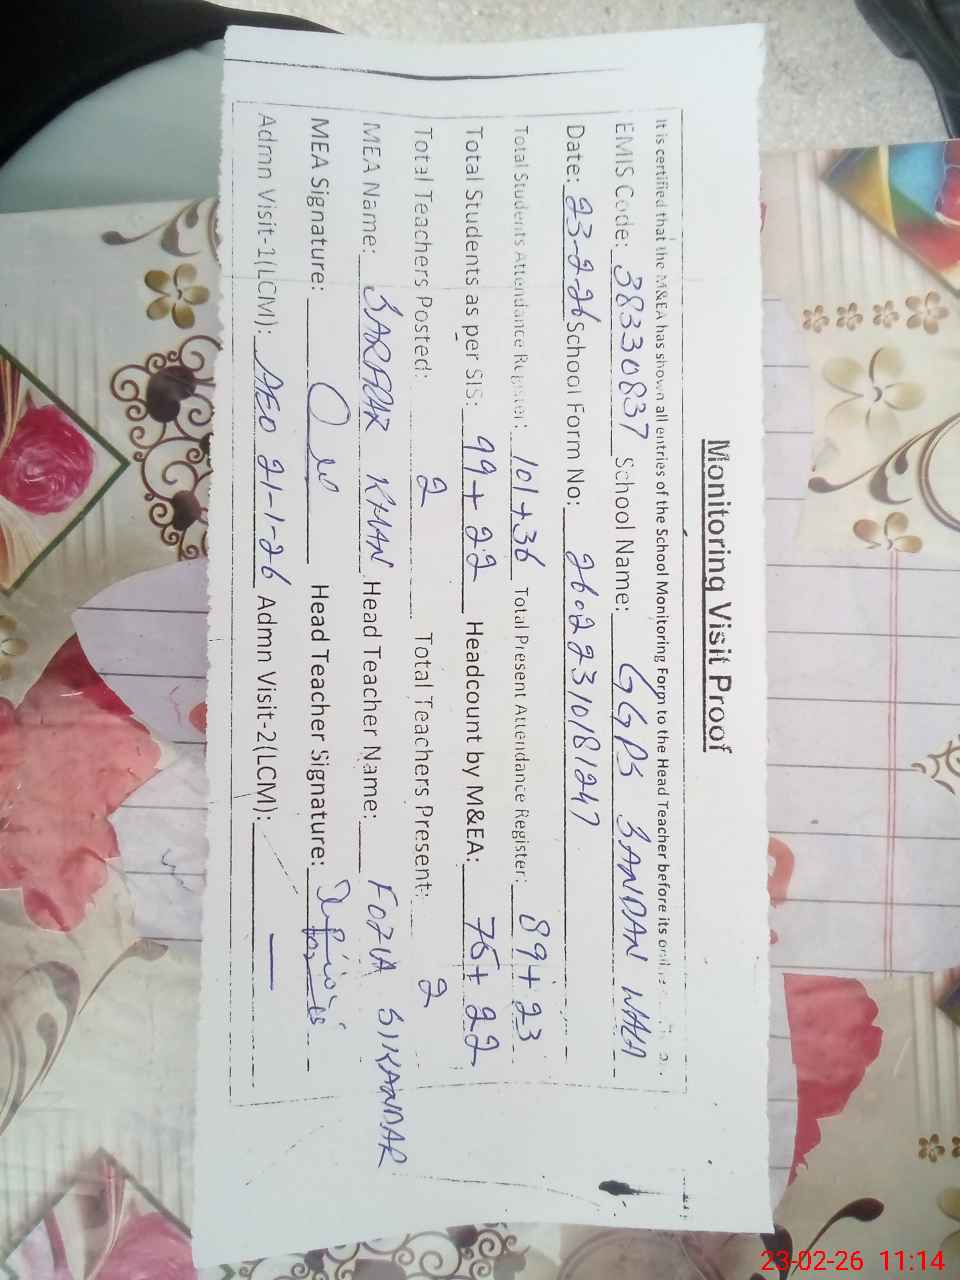 Monitoring Visit Proof
It is certified that the M&EA has shown all entries of the School Monitoring Form to the Head Teacher before its
EMIS Code: 38330837 School Name: GGPS BANDAN WALA
Date: 23-2-26 School Form No: 26022310181247
Total Students Attendance Register: 101+36 Total Present Attendance Register: 89+23
Total Students as per SIS: 99+22 Headcount by M&EA: 75+22
Total Teachers Posted: 2 Total Teachers Present: 2
MEA Name: KHAN Head Teacher Name: FOZIA SIKANDAR
MEA Signature: Head Teacher Signature:
Admn Visit-1(LCM): AEO 21-1-26 Admn Visit-2(LCM): —
23-02-26 11:14